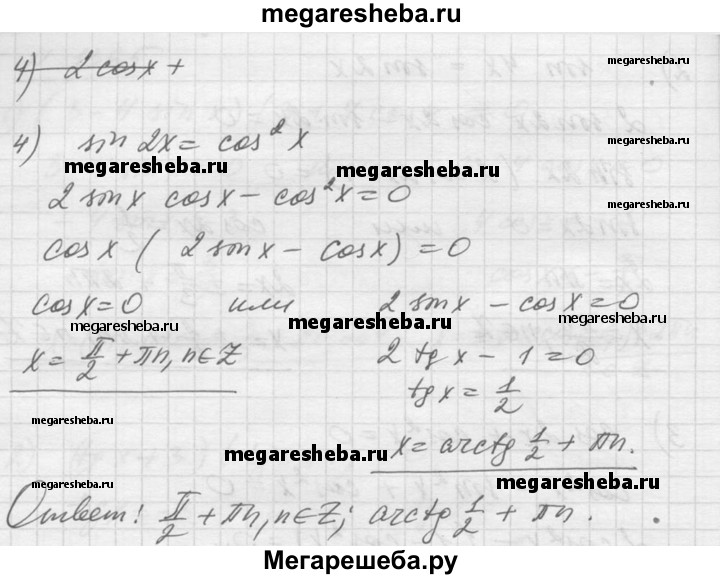 megaresheba.ru
4) 2 cosx +
megaresheba.ru
4) sin 2x = cos² x
megaresheba.ru megaresheba.ru
2 sinx cosx - cos²x = 0
cosx ( 2 sinx - cosx) = 0
cosx = 0 или 2 sinx - cosx = 0
megaresheba.ru megaresheba.ru megaresheba.ru
x = π/2 + πn, n∈Z 2 tg x - 1 = 0
tgx = 1/2
megaresheba.ru
x = arctg 1/2 + πn.
megaresheba.ru megaresheba.ru
Ответ: π/2 + πn, n∈Z; arctg 1/2 + πn.
Мегарешеба.ру